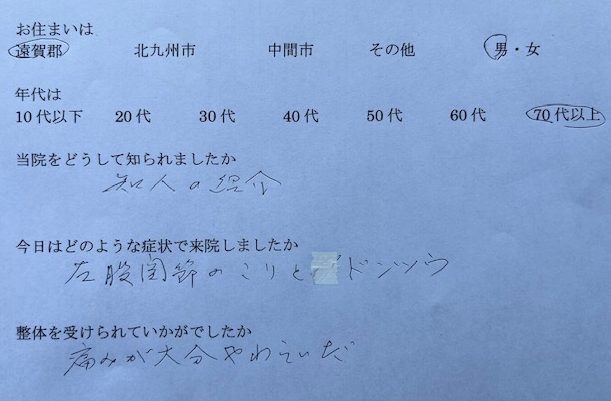 お住まいは
遠賀郡 北九州市 中間市 その他 男・女
年代は
10代以下 20代 30代 40代 50代 60代 70代以上
当院をどうして知られましたか
知人の紹介
今日はどのような症状で来院しましたか
左股関節のこりとドンツウ
整体を受けられていかがでしたか
痛みが大分やわらいだ